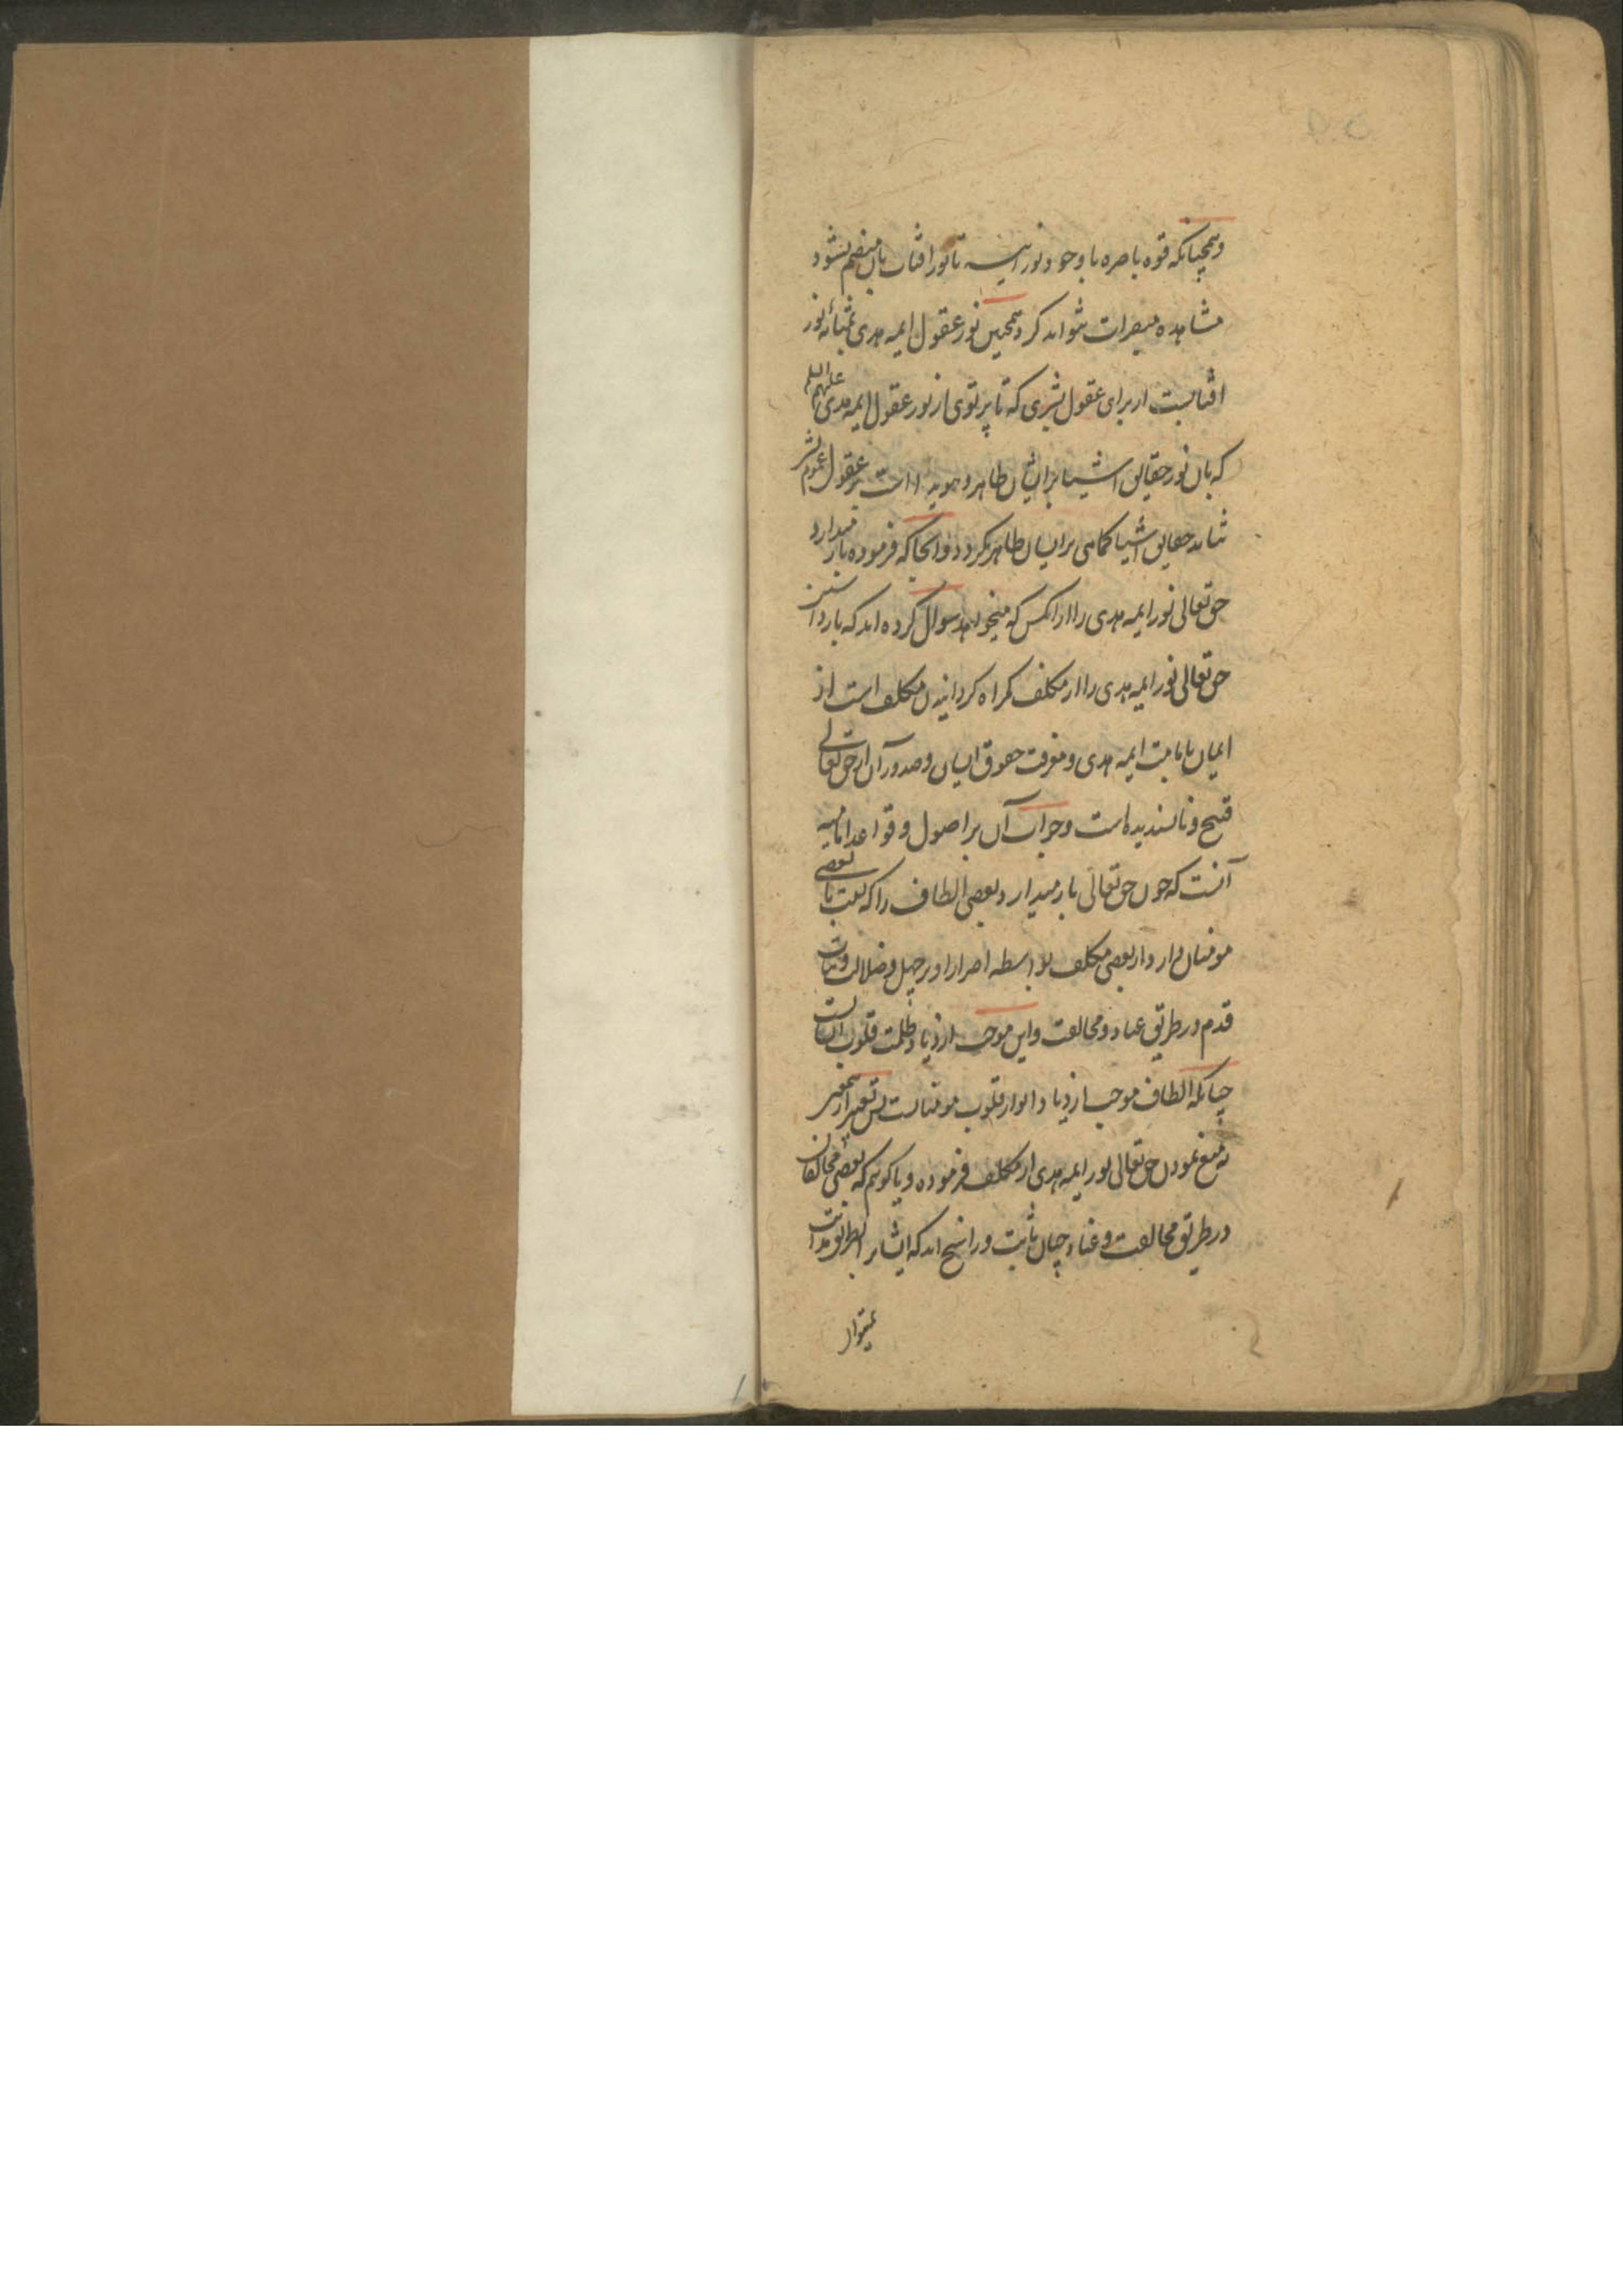 وهمچنانکه قوه باصره با وجود نورانیت تا نور افتاب بان منضم نشود
مشاهده مبصرات نتواند کرد همچنین نور عقول ایمه هدی بمثابه نور
افتابست از برای عقول بشری که تا پرتوی از نور عقول ایمه هدی علیهم السلام
که بان نور حقایق اشیا بر ایشان ظاهر و هویدا است بر عقول عموم بشر
نتابد حقایق اشیا کماهی بر ایشان ظاهر نکردد و انجا که فرموده باز میدارد
حق تعالی نور ایمه هدی را از انکس که میخواهد سوال کرده اند که باز داشتن
حق تعالی نور ایمه هدی را از مکلف کمراه کردانیدن مکلف است از
ایمان بامامت ایمه هدی و معرفت حقوق ایشان و صدور آن از حق تعالی
قبیح و ناپسندیده است و جواب آن بر اصول و قواعد امامیه
آنست که چون حق تعالی باز میدارد بعضی الطاف را که نسبت با بعضی
مومنان دارد از بعضی مکلف بواسطه اصرار او بر جهل و ضلالت و ثبات
قدم در طریق عناد و مخالفت و این موجب ازدیاد ظلمت قلوب ایشانست
چنانکه الطاف موجب ازدیاد انوار قلوب مومنانست پس تعبیر از همین
به منع نمودن حق تعالی نور ایمه هدی از مکلف فرموده و یا کوییم که بعضی مخالفان
در طریق مخالفت و عناد چنان ثابت و راسخ اند که ایشانرا بطریق هدایت
نمیتوان